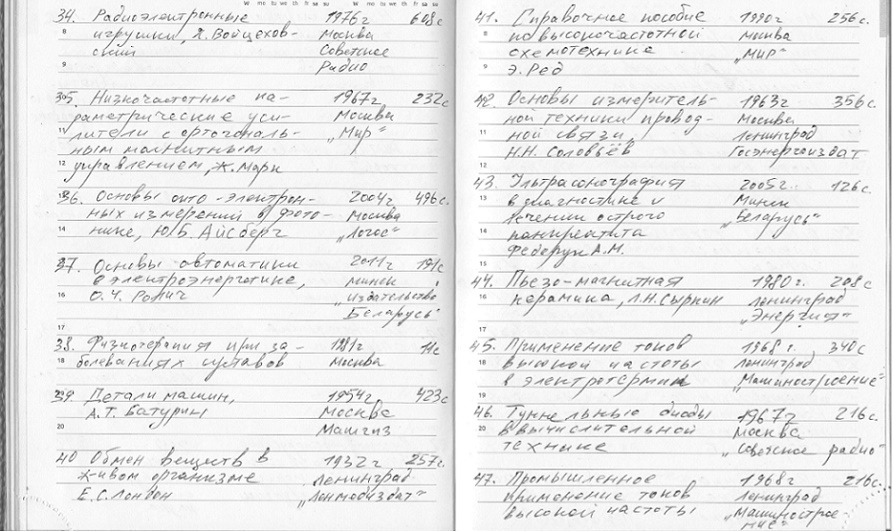 34. Радиоэлектронные 1976г 608с
игрушки, Я. Войцехов- Москва
ский Советское
Радио
35. Низкочастотные па- 1967г 232с
раметрические уси- Москва
лители с ортогональ- „Мир"
ным магнитным
управлением, Ж. Марк
36. Основы опто-электрон- 2004г 496с.
ных измерений в фото- Москва
нике, Ю.Б. Айсберг „Логос"
37. Основы автоматики 2011г 191с
в электроэнергетике, Минск
О.Ч. Ролич „Издательство
Беларусь"
38. Физиотерапия при за- 1981г 11с
болеваниях суставов Москва
39. Детали машин, 1954г 423с
А.Т. Батурин Москва
Машгиз
40 Обмен веществ в 1932г 257с.
живом организме Ленинград
Е.С. Лондон „Ленмедиздат"
41. Справочное пособие 1990г 256с.
по высокочастотной Москва
схемотехнике „Мир"
Э. Ред
42. Основы измеритель- 1963г 356с
ной техники провод- Москва
ной связи, Ленинград
Н.Н. Соловьёв Госэнергоиздат
43. Ультрасонография 2005г. 126с.
в диагностике и Минск
лечении острого „Беларусь"
панкреатита
Федорук А.М.
44. Пьезо-магнитная 1980г. 208с
керамика, Л.Н. Сыркин Ленинград
„Энергия"
45. Применение токов 1968г. 340с
высокой частоты Ленинград
в электротермии „Машиностроение"
46. Туннельные диоды 1967г 216с.
в вычислительной Москва
технике „Советское радио"
47. Промышленное 1968г 216с.
применение токов Ленинград
высокой частоты „Машинострое-
ние"